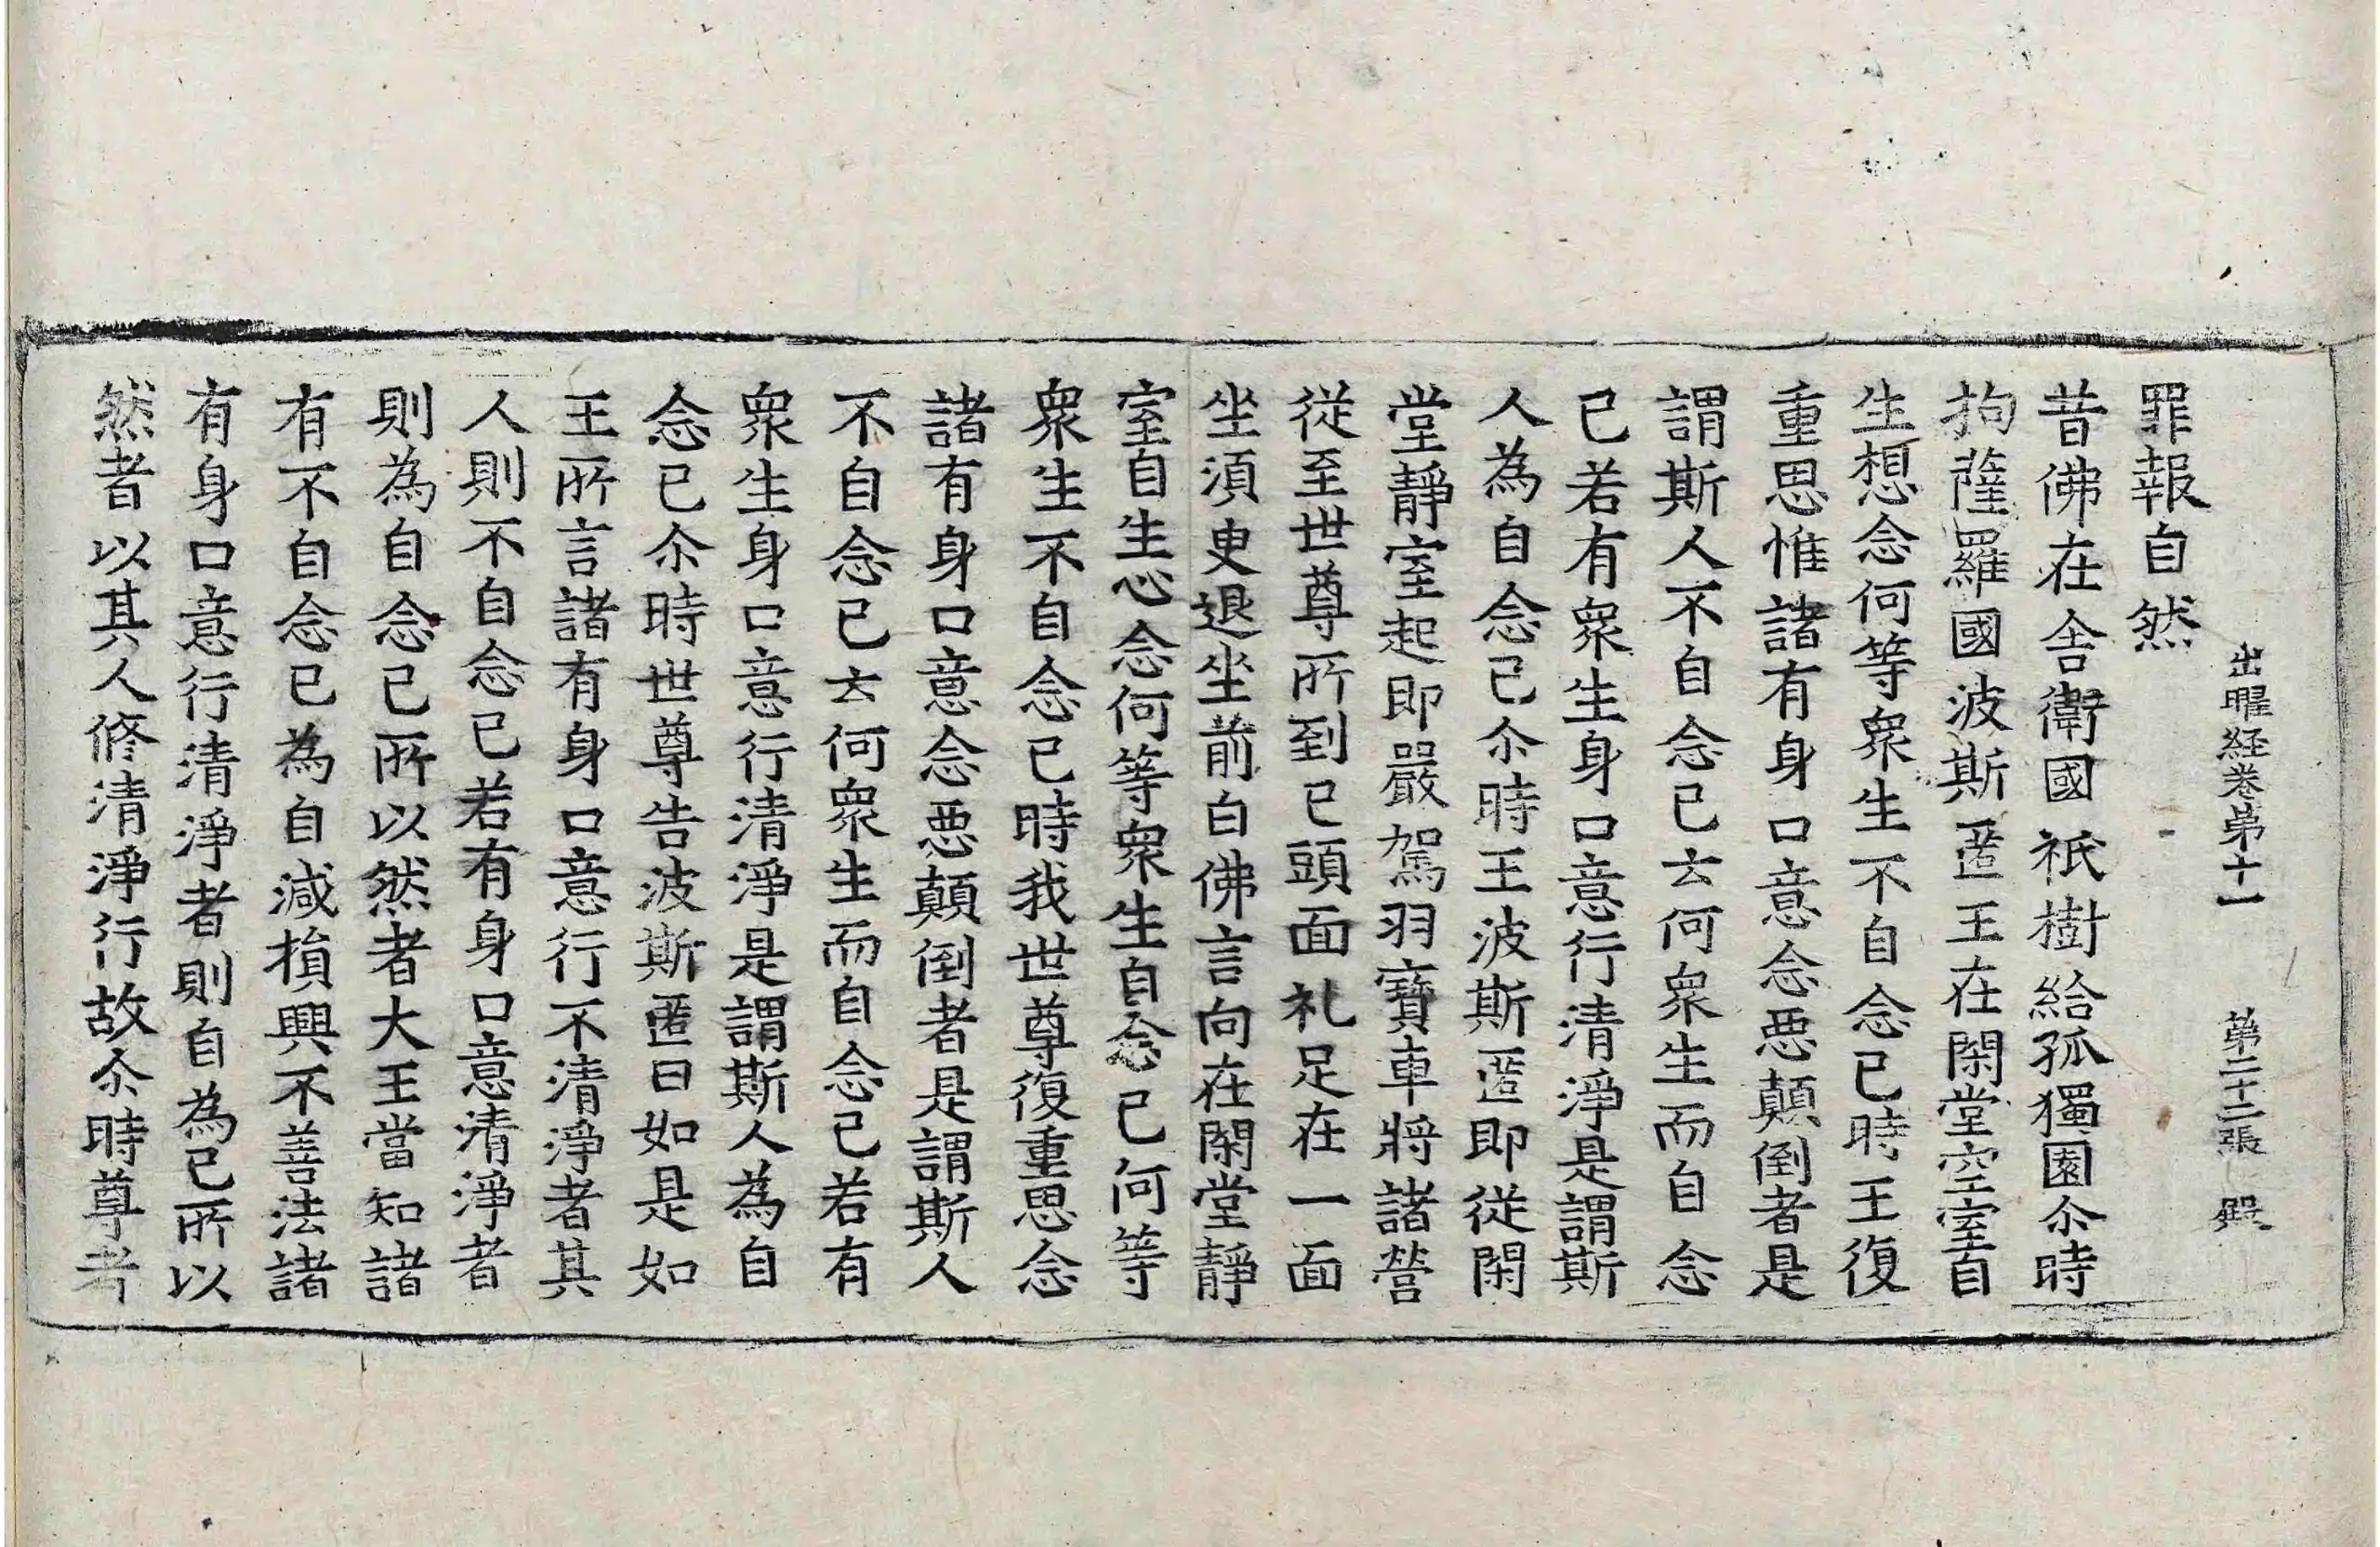 出曜経卷苐十一 苐二十二張 殿
罪報自然
昔佛在舍衛國祇樹給孤獨園尒時
拘薩羅國波斯匿王在閑堂空室自
生想念何等衆生不自念已時王復
重思惟諸有身口意念惡顛倒者是
謂斯人不自念已云何衆生而自念
已若有衆生身口意行清淨是謂斯
人為自念已尒時王波斯匿即從閑
堂靜室起即嚴駕羽寶車將諸營
從至世尊所到已頭面礼足在一面
坐須臾退坐前白佛言向在閑堂靜
室自生心念何等衆生自念已何等
衆生不自念已時我世尊復重思念
諸有身口意念惡顛倒者是謂斯人
不自念已云何衆生而自念已若有
衆生身口意行清淨是謂斯人為自
念已尒時世尊告波斯匿曰如是如
王所言諸有身口意行不清淨者其
人則不自念已若有身口意清淨者
則為自念已所以然者大王當知諸
有不自念已為自減損興不善法諸
有身口意行清淨者則自為已所以
然者以其人修清淨行故尒時尊者